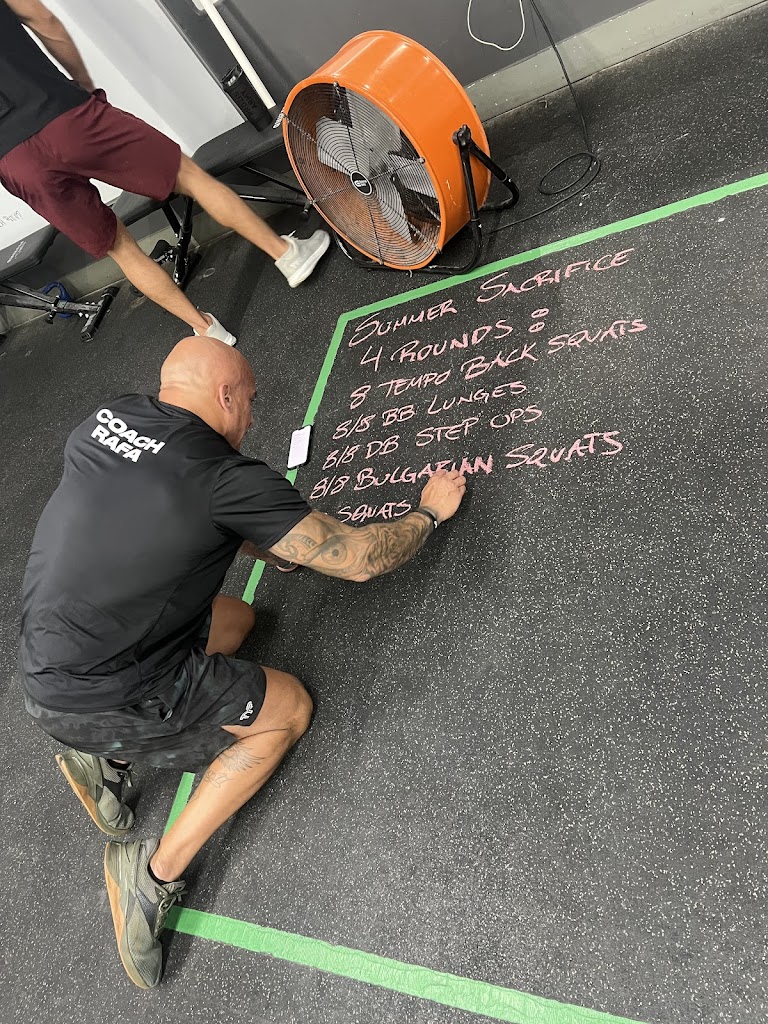 COACH
RAFA
SUMMER SACRIFICE
4 ROUNDS:
8 TEMPO BACK SQUATS
8/8 BB LUNGES
8/8 DB STEP OPS
8/8 BULGARIAN SQUATS
SQUATS